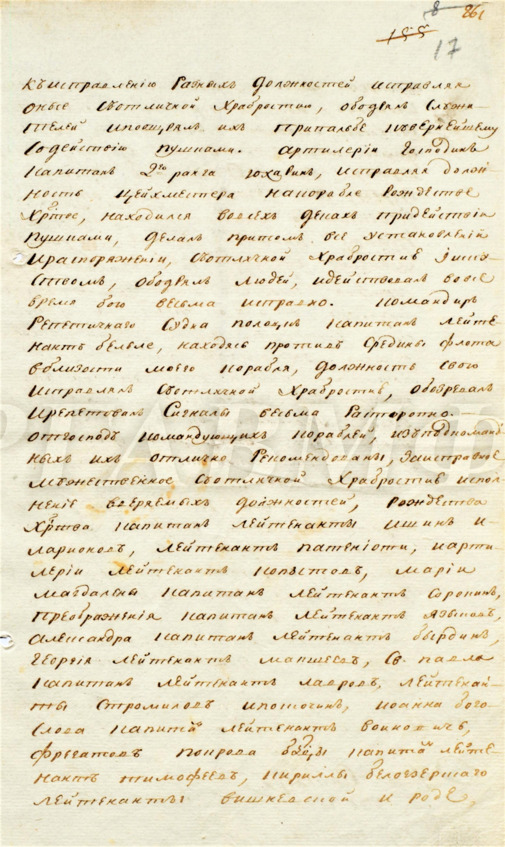 8 261
155
17
къисправленію Разныхъ должностей исправлял
оные съотличной храбростью, ободрялъ служи-
телей ипоощрялъ ихъ припальбе
содействію пушками. артилеріи Господинъ
капитанъ 2го ранга исправляя долж-
ность Цейхместера накорабле рождестве
Хртове, находился вовсехъ декахъ придействіи
пушками, делалъ притомъ все установленій
ираспоряженіи, съотличной храбростію Іиску-
ствомъ, ободрялъ людей, идействовалъ вовсе
время боя весьма исправно. командиръ
Репетичнаго судна полоцкъ капитанъ лейте
нантъ белле, находясь противъ средины флота
вблизости моего корабля, должность свою
исправлялъ съотличной храбростію, обозревалъ
ирепетовалъ сигналы весьма расторопно. —
отгосподъ командующихъ кораблей,
ихъ отлично рекомендованы, заисправное
мужественное съотличной храбростію испол-
неніе вверяемыхъ должностей, рождества
Хртва капитанъ лейтенанты ишинъ и
ларионовъ, лейтенантъ патеніоти, иарти-
леріи лейтенантъ копытовъ, маріи
магдалены капитанъ лейтенантъ сорокинъ,
преображенія капитанъ лейтенантъ языковъ,
александра капитанъ лейтенантъ бырдинъ,
георгія лейтенантъ макшеевъ, св. павла
капитанъ лейтенантъ лавровъ, лейтенан-
ты стромиловъ ипоточинъ, иоанна бого-
слова капитанъ лейтенантъ войновичъ,
фрегатовъ покрова бцы капитанъ лейте-
нантъ тимофеевъ, кириллы белозерскаго
лейтенанты вишневской и роде,